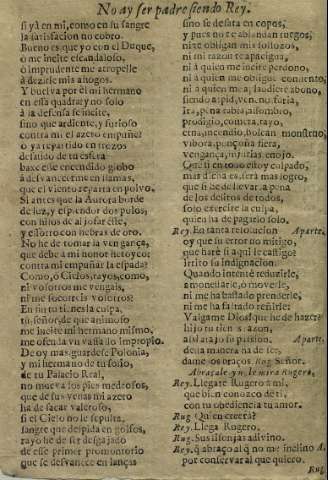 No ay ser padre siendo Rey.
si ya en mi, como en su sangre
la satisfacion no cobro.
Bueno es que yo con el Duque,
o me incite escandaloso,
ò imprudente me atropelle
à dezirle mis ahogos.
Y buelva por él mi hermano
en essa quadra, y no solo
à la defensa se incite,
sino que ardiente, y furioso
contra mi el azero empuñe!
o ya partido en trozos
desatido de su esfera
baxe esse encendido globo
à desvanecerme en llamas,
que el viento reparta en polvo.
Si antes que la Aurora borde
de luz, y esplendor dos polos,
con hilos de aljofar este,
y estotro con hebras de oro.
No he de tomar la vengança,
que debe à mi honor heroyco:
contra mi empuñar la espada!
Como, ò Cielos, rayos, como,
ni vosotros me vengais,
ni me socorreis vosotros?
En fin tu tienes la culpa,
tu, señor, de que animoso
me incite mi hermano mismo,
me ofenda vn vassallo impropio.
De oy mas guardese Polonia,
y mi hermano de tu solio,
de tu Palacio Real,
no mueva los pies medrosos,
que de sus venas mi azero
ha de sacar valeroso,
si el Cielo no le sepulta,
sangre que despida en golfos,
rayo he de ser desgajado
de esse primer promontorio
que se desvanece en lanças
sino se desata en copos,
y pues no te ablandan ruegos,
ni te obligan mis sollozos,
ni mi razon te apacigua,
ni à quien me incite perdono,
ni à quien me obligue consiento,
ni à quien me aplaudiere abono,
siendo aspid, veneno, furia,
ira, pena, rabia, assombro,
prodigio, cometa, rayo,
etna, incendio, bolcan monstruo,
vibora, ponçoña fiera,
vengança, injurias, enojo.
Que si en todo estoy culpado,
mas dicha es, serà mas logro,
que si he de llevar la pena
de los delitos de todos,
solo exercite la culpa,
quien ha de pagarlo solo.
Rey. En tanta resolucion Aparte.
oy que su error no mitigo,
que harè si aqui le castigo?
irrito su indignacion:
Quando intentè reduzirle,
amonestarle, ò moverle,
ni me ha bastado prenderle,
ni me ha faltado reñirle:
Valgame Dios! que he de hazer?
hijo tu tienes razon, Aparte.
assi atajo su passion.
desta manera ha de ser,
dame los braços. Rug. Señor.
Abraçale, y le mira Rugero.
Rey. Llegate Rugero à mi,
que bien conozco de ti,
con tu obediencia tu amor.
Rug. Quien creerà?
Rey. Llega Rugero.
Rug. Sus lisonjas adivino.
Rey. q̃ abraço al q̃ no me inclino A.
por conservar al que quiero.
Rug.